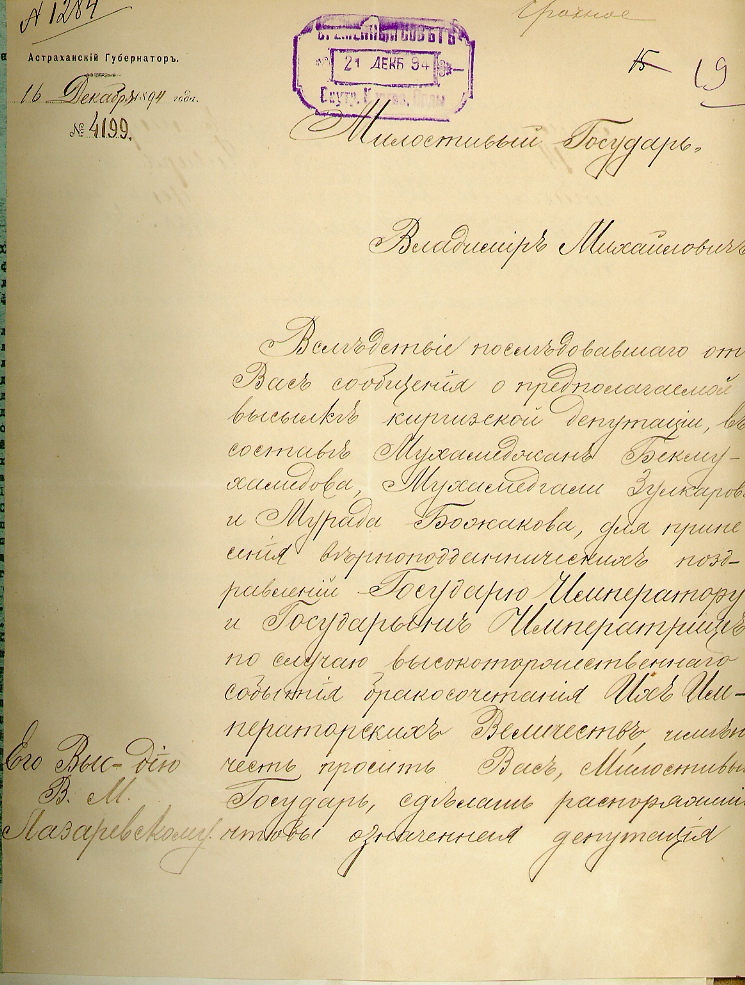 № 1284
Срочное
Астраханскій Губернаторъ.
16 Декабря 1894 года.
№ 4199.
ВРЕМЕННЫЙ СОВѢТЪ
21 ДЕКБ 94
Внутр. Орды
15 19
Милостивый Государь,
Владиміръ Михайловичъ
Вслѣдствіе послѣдовавшаго от
Васъ сообщенія о предполагаемой
высылкѣ киргизской депутаціи, въ
составѣ Мухамеджана Бекму-
хамедова, Мухамедгали Зулкаров
и Мурада Божакова, для прине
сенія вѣрноподданническихъ позд-
равленій Государю Императору
и Государынѣ Императрицѣ
по случаю высокоторжественнаго
событія бракосочетанія Ихъ Им-
ператорскихъ Величествъ, имѣю
честь просить Васъ, Милостивый
Государь, сдѣлать распоряжені
чтобы означенная депутація
Его Выс-дію
В. М.
Лазаревскому.